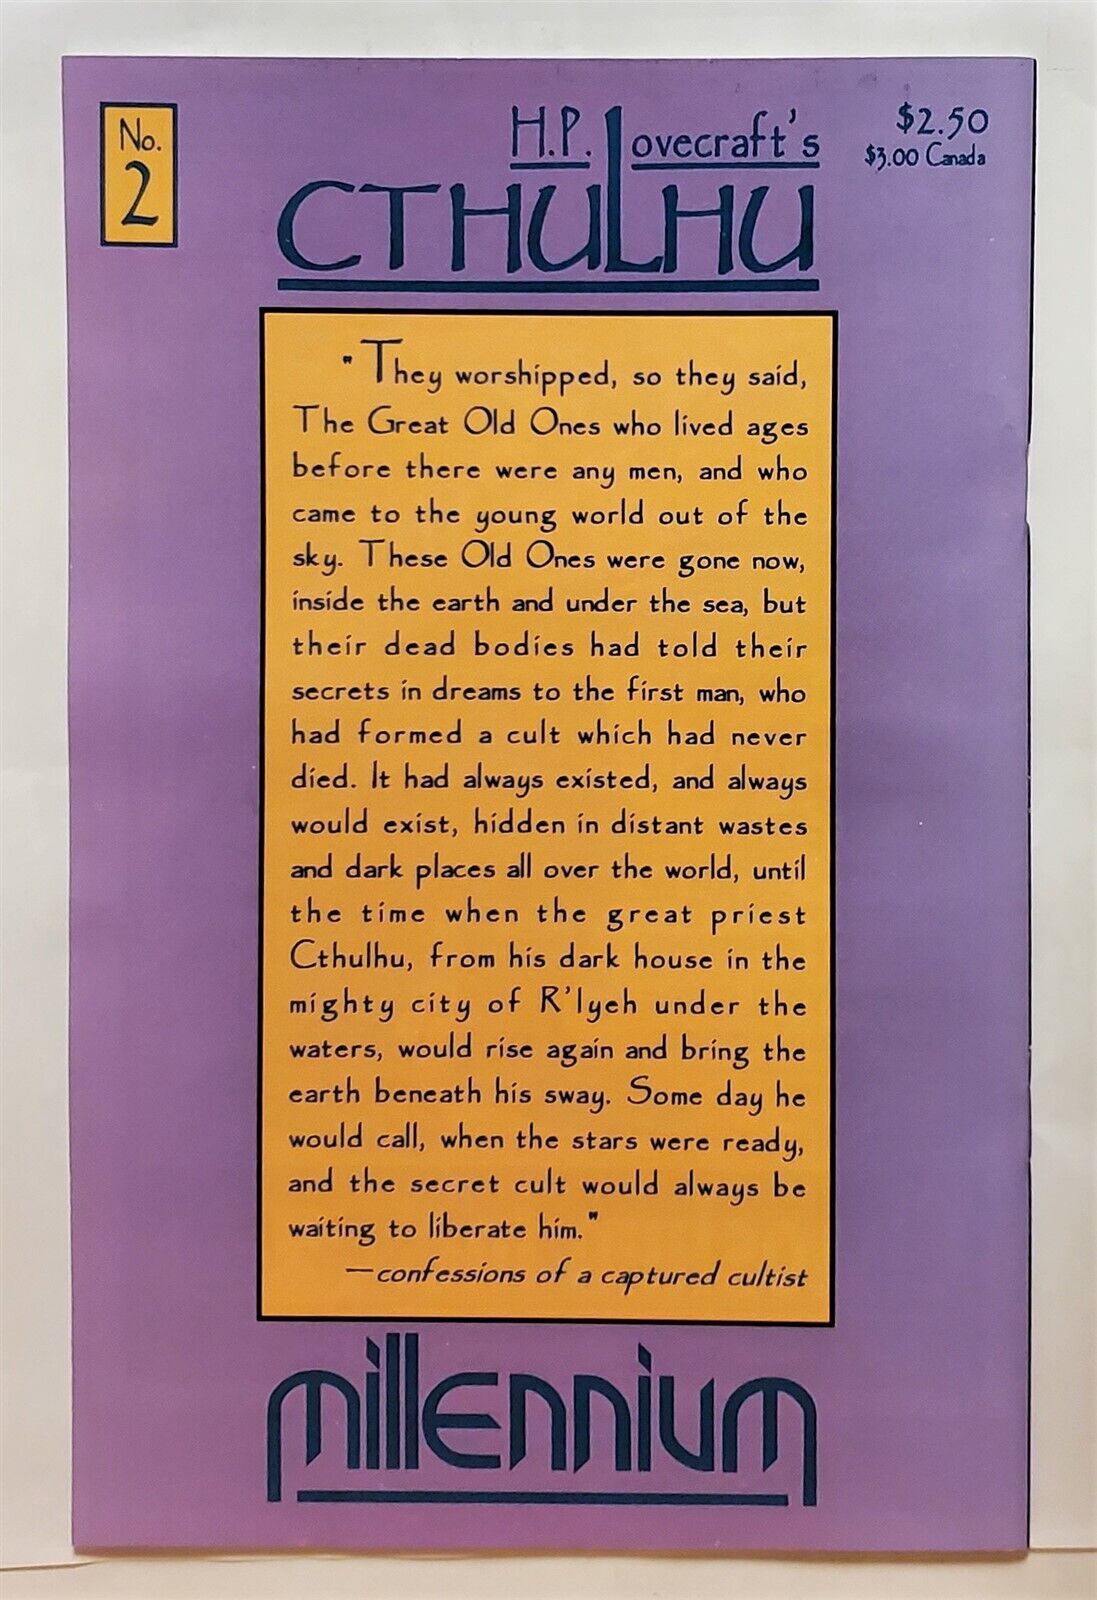 No.
2
H.P. Lovecraft's
CTHULHU
$2.50
$3.00 Canada
"They worshipped, so they said,
The Great Old Ones who lived ages
before there were any men, and who
came to the young world out of the
sky. These Old Ones were gone now,
inside the earth and under the sea, but
their dead bodies had told their
secrets in dreams to the first man, who
had formed a cult which had never
died. It had always existed, and always
would exist, hidden in distant wastes
and dark places all over the world, until
the time when the great priest
Cthulhu, from his dark house in the
mighty city of R'lyeh under the
waters, would rise again and bring the
earth beneath his sway. Some day he
would call, when the stars were ready,
and the secret cult would always be
waiting to liberate him."
—confessions of a captured cultist
millennium